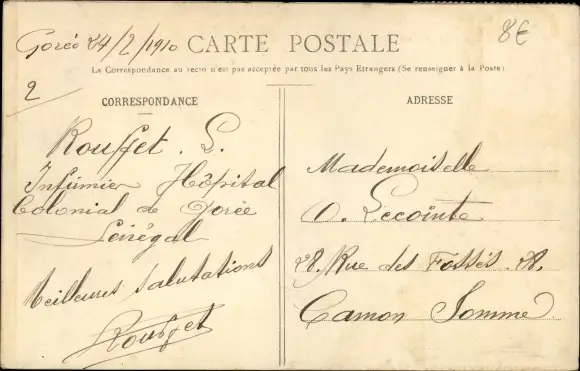 Gorée 24/2/1910
CARTE POSTALE
8€
La Correspondance au recto n'est pas acceptée par tous les Pays Etrangers (Se renseigner à la Poste)
2
CORRESPONDANCE
Rouffet. L.
Infirmier Hôpital
Colonial de Gorée
Sénégal
Meilleures salutations
Rouffet
ADRESSE
Mademoiselle
O. Lecointe
28. Rue des Fossés. 28.
Camon Somme.